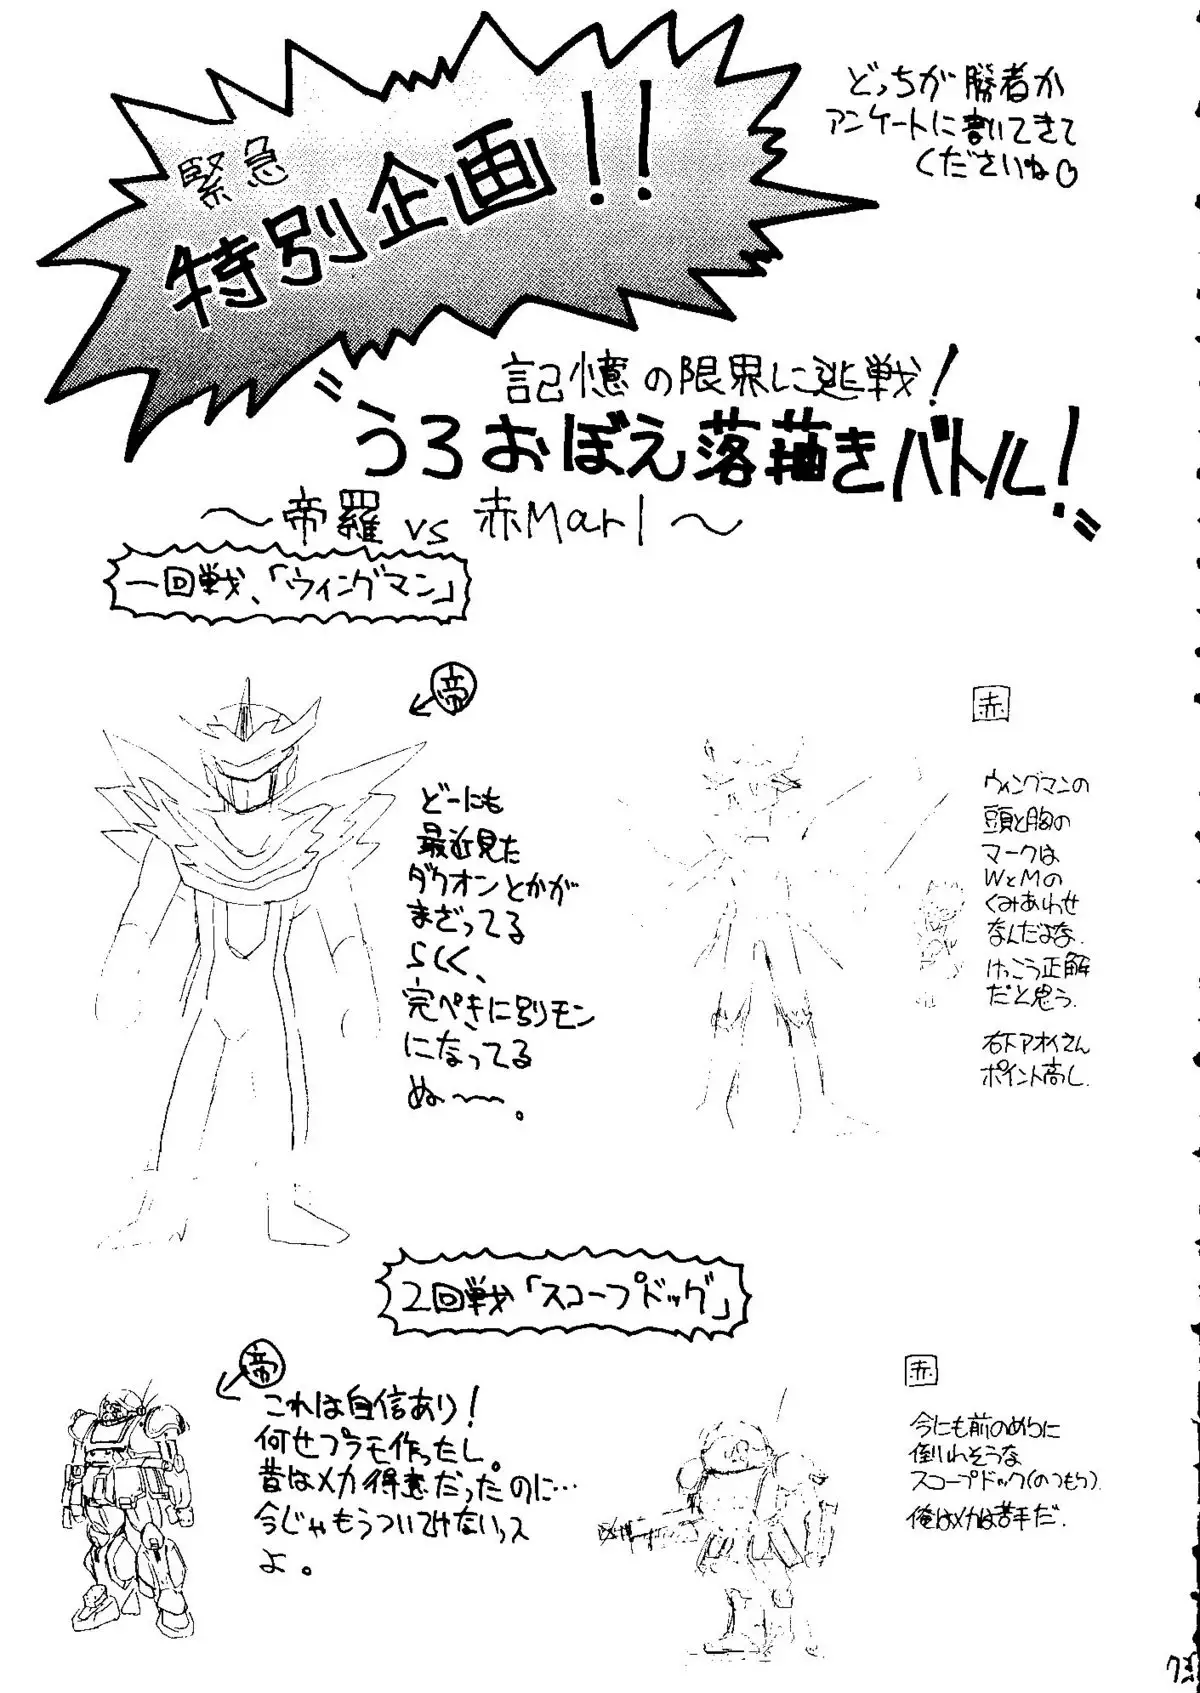 緊急
特別企画!!
どっちが勝者か
アンケートに書いてきて
くださいね♡
記憶の限界に挑戦!
"うろおぼえ落描きバトル!"
～帝羅 vs 赤Marl～
一回戦、「ウィングマン」
帝
どーにも
最近見た
ダグオンとかが
まざってる
らしく、
完ぺきに別モン
になってる
ぬ〜〜。
赤
ウィングマンの
頭と胸の
マークは
WとMの
くみあわせ
なんだよな.
けっこう正解
だと思う.
右下アオイさん
ポイント高し.
2回戦「スコープドッグ」
帝
これは自信あり!
何せプラモ作ったし。
昔はメカ得意だったのに…
今じゃもうついてけないッス
よ。
赤
今にも前のめりに
倒れそうな
スコープドッグ(のつもり).
俺はメカは苦手だ.